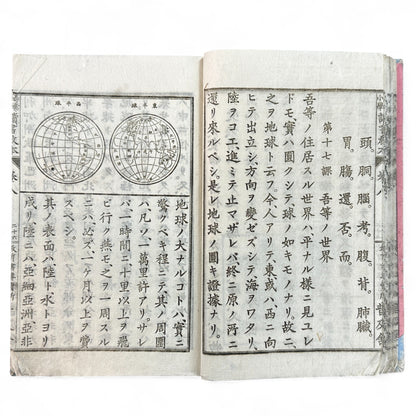 頭。胴。腦。考。腹。背。肺臟。
胃。腸。還。否。而。
第十七課　吾等ノ世界
吾等ノ住居スル世界ハ、平ナル樣ニ見ユレ
ドモ、實ハ圓クシテ、球ノ如キモノナリ。故ニ、
之ヲ地球ト云フ。今、人アリテ、東或ハ、西ニ向
ヒテ出立シ、方向ヲ變ゼズシテ、海ヲワタリ、
陸ヲコエ、進ミテ止マザレバ、終ニ原ノ所ニ
還リ來ルベシ。是レ地球ノ圓キ證據ナリ。
東半球
西半球
地球ノ大ナルコトハ、實ニ
驚クベキ程ニテ、其ノ周圍
ハ、凡ソ一萬里許アリ。サレ
バ、一時間二十里以上ヲ飛
ビ行ク燕モ、之ヲ一周スル
ニハ、必ズ、一ケ月以上ヲ費
スベシ。
其ノ表面ハ、陸ト水トヨリ
成リ、陸ニハ、亞細亞洲、亞非